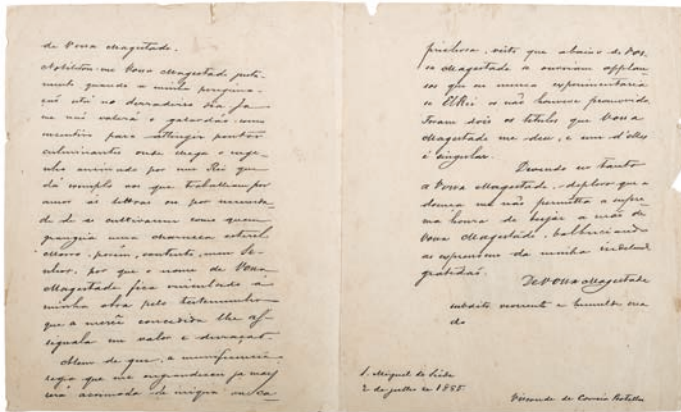 de Vossa Magestade.
Nobilitou-me Vossa Magestade justa-
mente quando a minha peregrina-
ção está no derradeiro dia. Já
me não valerá o galardão como
incentivo para attingir pontos
culminantes onde chega o enge-
nho animado por um Rei que
dá exemplo aos que trabalham por
amor ás lettras ou por necessida-
de de se cultivarem como quem
grangeia uma charneca esteril
Morro, porém, contente, meu Se-
nhor, por que o nome de Vossa
Magestade fica vinculado á
minha obra pelo testemunho
que a mercê concedida lhe as-
signala em valor e duração.
Alem de que, a munificencia
regia que me engrandeceu ja mais
será acoimada de iniqua ou ca-
prichosa, visto que abaixo de Vos-
sa Magestade se ouviram applau-
sos que eu nunca experimentaria
se ElRei os não houvesse promovido.
Foram dois os titulos que Vossa
Magestade me deu, e um d'elles
é singular.
Devendo eu tanto
a Vossa Magestade, deploro que a
doença me não permitta a supre-
ma honra de beijar a mão de
Vossa Magestade, balbuciando
as expressões da minha indelevel
gratidão.
De Vossa Magestade
subdito reverente e humilde cria
do
S. Miguel de Seide
2 de julho de 1885
Visconde de Correia Botelho